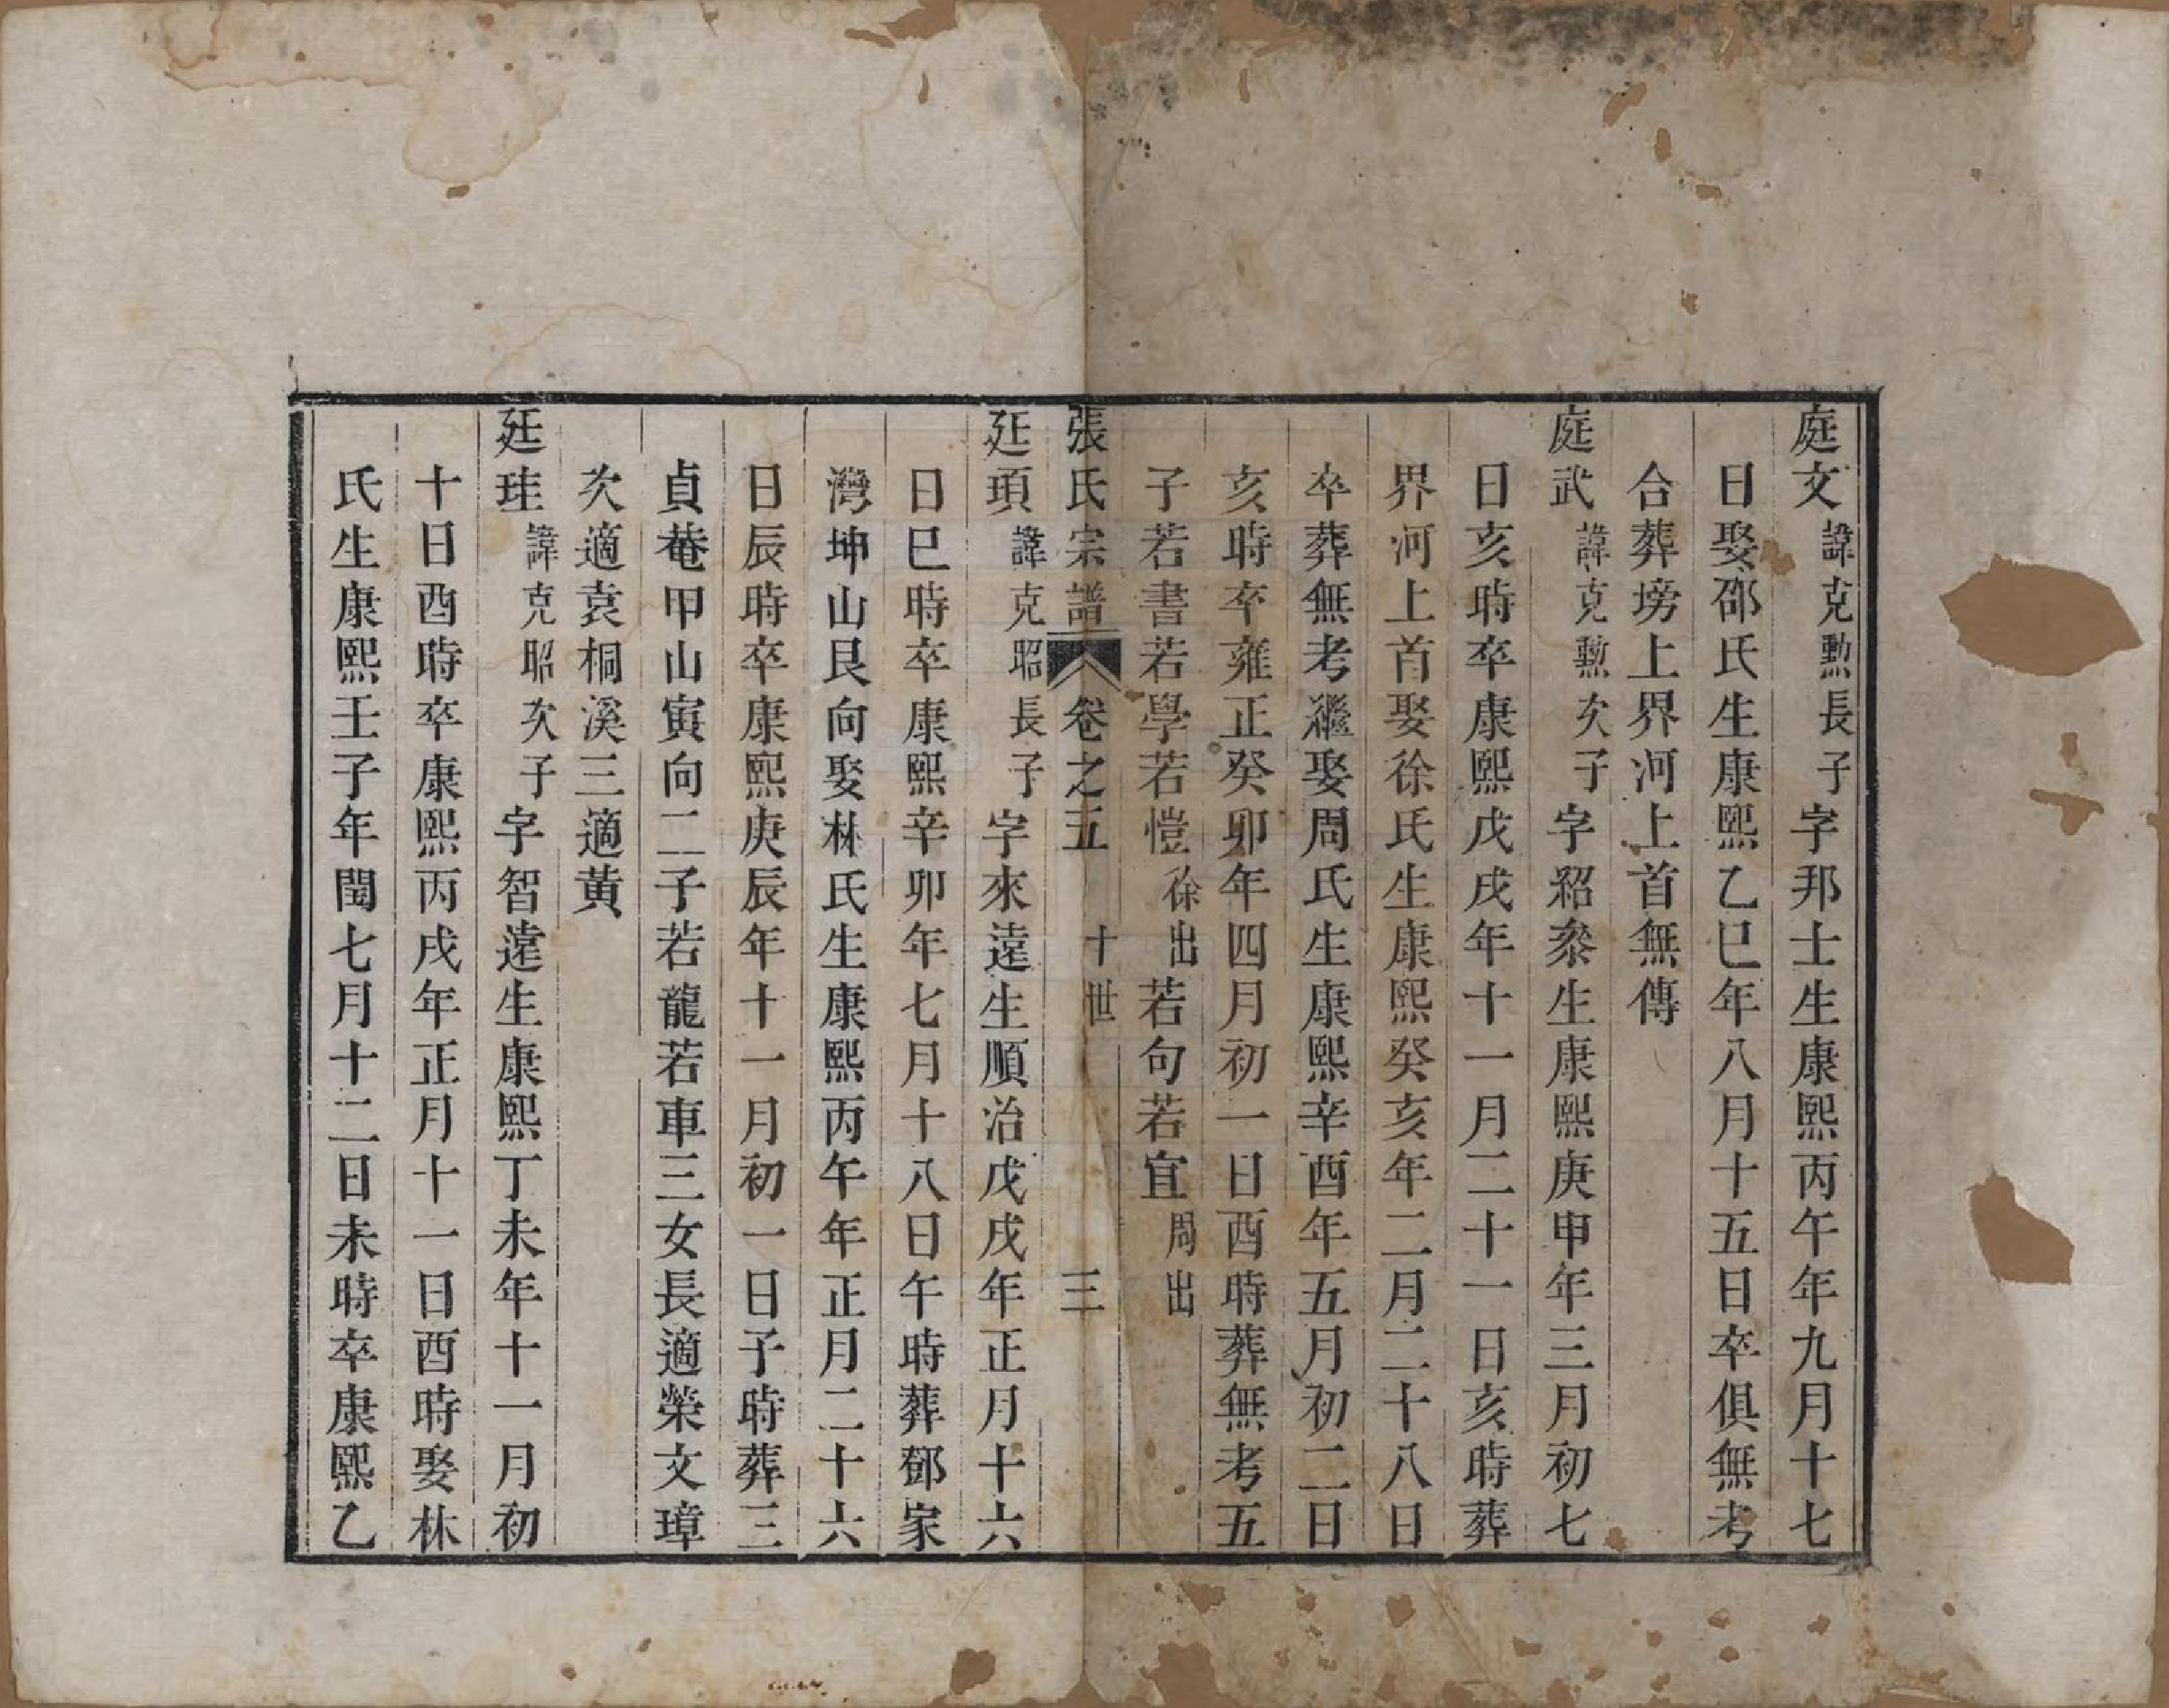 庭文諱克勲長子字邦士生康熙丙午年九月十七
日娶邵氏生康熙乙巳年八月十五日卒俱無考
合葬塝上界河上首無傳
庭武諱克勲次子字紹叅生康熙庚申年三月初七
日亥時卒康熙戊戌年十一月二十一日亥時葬
界河上首娶徐氏生康熙癸亥年二月二十八日
卒葬無考繼娶周氏生康熙辛酉年五月初二日
亥時卒雍正癸卯年四月初一日酉時葬無考五
子若書若學若愷徐出若句若宜周出
張氏宗譜 卷之五 十世 三
廷頊諱克昭長子字來遠生順治戊戌年正月十六
日巳時卒康熙辛卯年七月十八日午時葬鄧家
灣坤山艮向娶林氏生康熙丙午年正月二十六
日辰時卒康熙庚辰年十一月初一日子時葬三
貞菴甲山寅向二子若龍若車三女長適榮文璋
次適袁桐溪三適黃
廷珪諱克昭次子字智遠生康熙丁未年十一月初
十日酉時卒康熙丙戌年正月十一日酉時娶林
氏生康熙壬子年閏七月十二日未時卒康熙乙